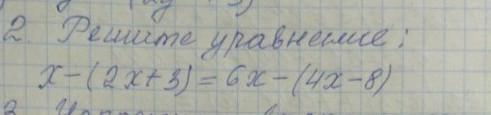 2. Решите уравнение:
x-(2x+3)=6x-(4x-8)